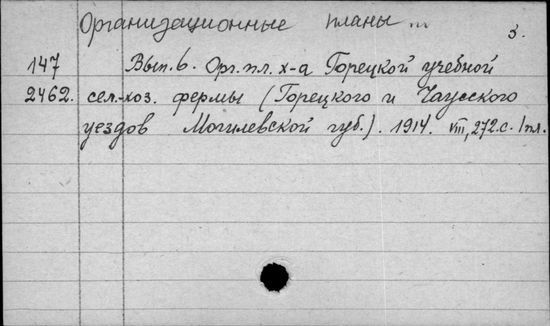 Организационные планы...
3.
147 Вып. 6. Орг. пл. х-а Горецкой учебной
2462. сел.-хоз. фермы (Горецкого и Чаусского
уездов Могилевской губ.). 1914. VIII, 272 с. 1 пл.